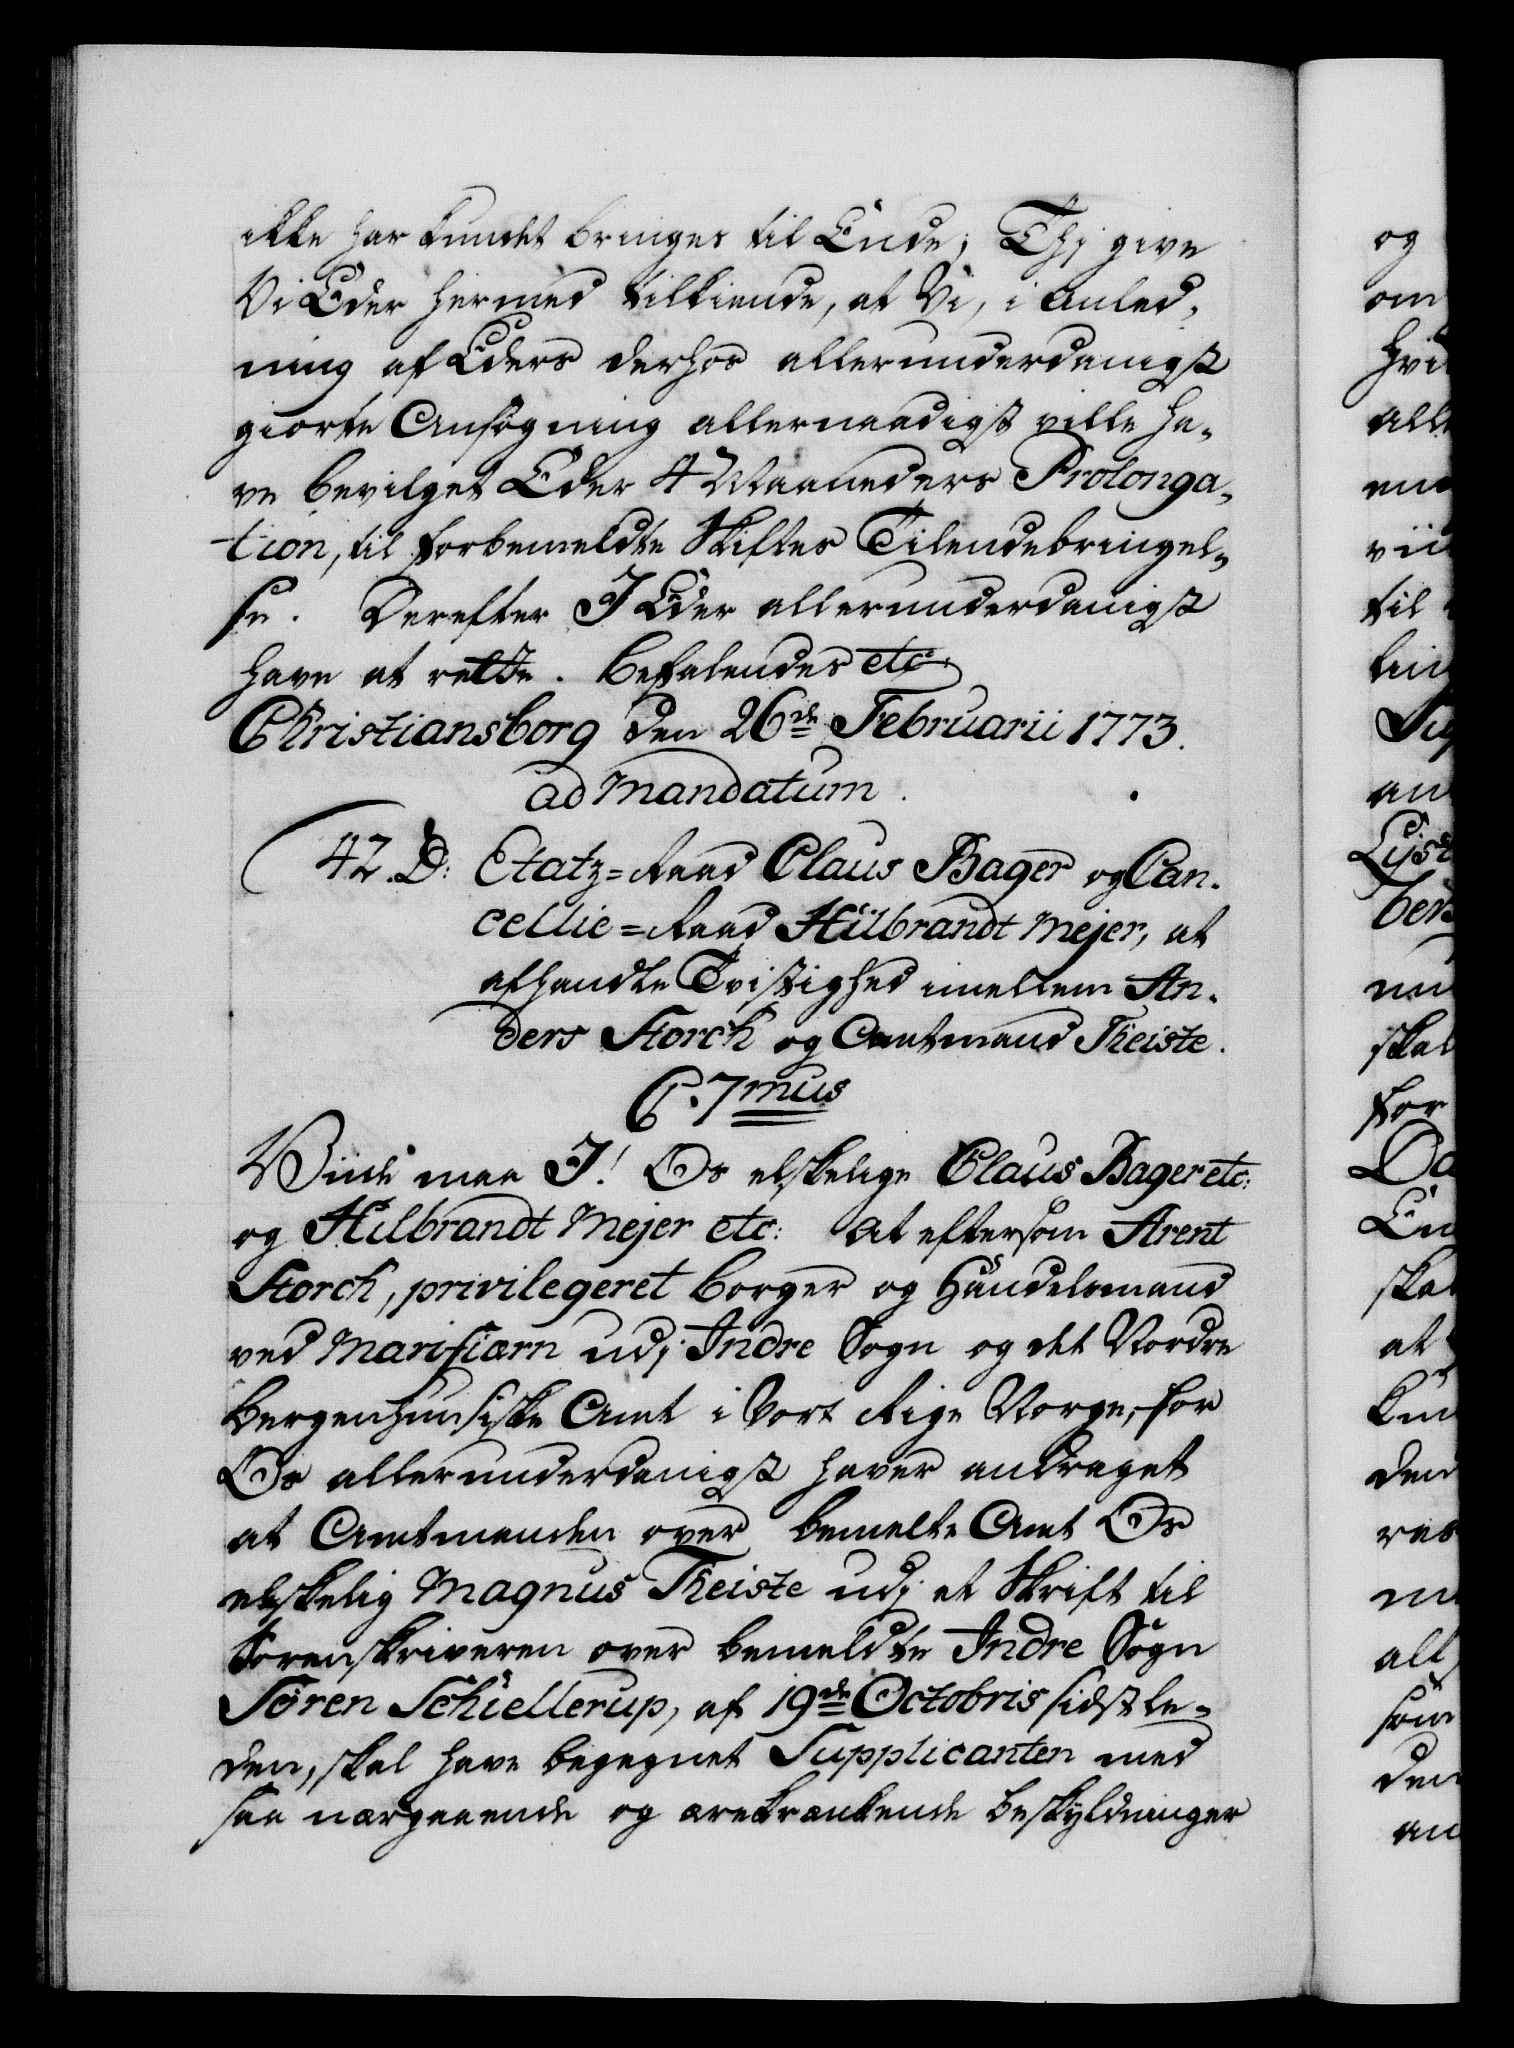 ikke har kundet bringes til Ende; Thj give
Vi Eder hermed tilkiende, at Vi, i Anled-
ning af Eders derhos allerunderdanigst
giorte Ansøgning allernaadigst ville ha-
ve bevilget Eder 4 Maaneders Prolonga-
tion, til forbemeldte Skiftes Tilendebringel-
se. Derefter I Eder allerunderdanigst
have at rette. Befalendes etc:
Christiansborg den 26de Februarii 1773.
ad Mandatum.
42. D: Etatz-Raad Claus Bager og Can-
cellie-Raad Hilbrandt Mejer, at
afhandle Tvistighed imellem An-
ders Storch og Amtmand Theiste.
C. 7mus
Viide maa I! Os elskelige Claus Bager etc:
og Hilbrandt Mejer etc: At eftersom Arent
Storch, privilegeret Borger og Handelsmand
ved Marifiærn udj Indre Sogn og det Nordre
Bergenhuusiske Amt i Vort Rige Norge, for
Os allerunderdanigst haver andraget
at Amtmanden over bemelte Amt Os
elskelig Magnus Theiste udj et Skrift til
Sorenskriveren over bemeldte Indre Sogn
Søren Schiellerup, af 19de Octobris sidstle-
den, skal have begegnet Supplicanten med
saa nærgaaende og ærekrænkende Beskyldninger
og
om
til
at
den
som